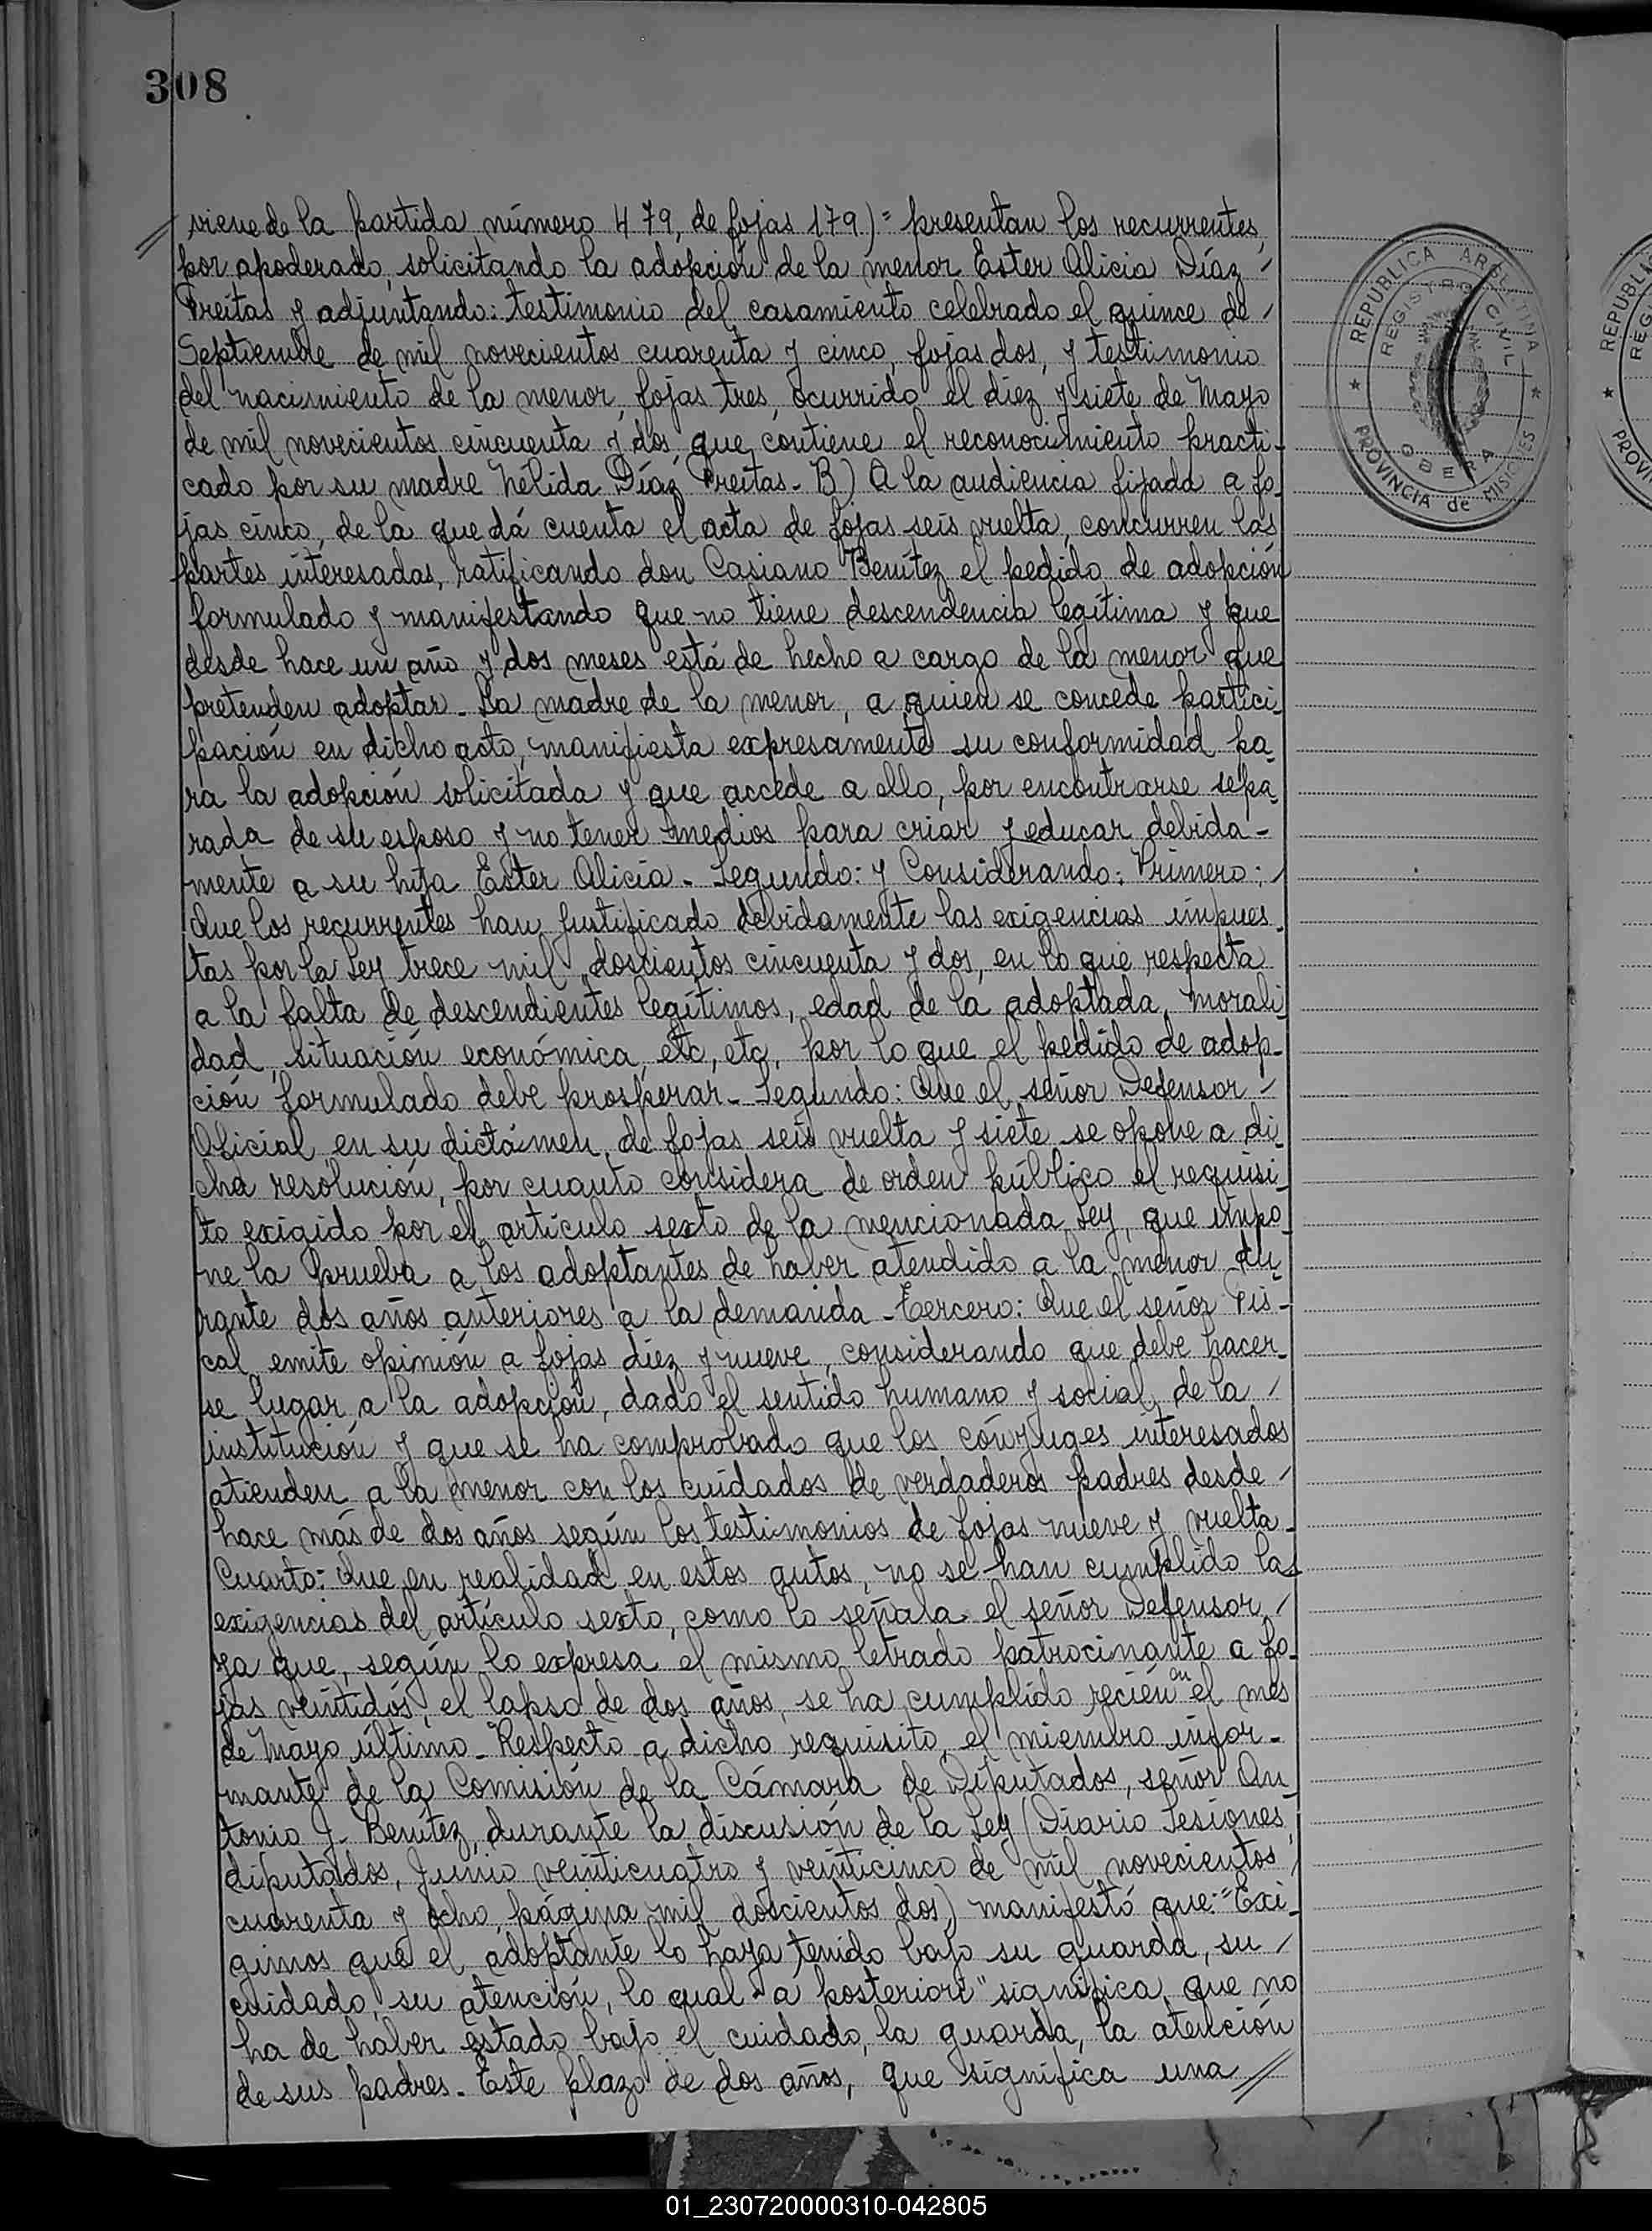 308
viene de la partida número 479, de fojas 179) = presentan los recurrentes,
por apoderado, solicitando la adopción de la menor Ester Alicia Díaz /
Freitas y adjuntando: testimonio del casamiento celebrado el quince de /
Septiembre de mil novecientos cuarenta y cinco, fojas dos, y testimonio
del nacimiento de la menor, fojas tres, ocurrido el diez y siete de Mayo
de mil novecientos cincuenta y dos, que contiene el reconocimiento practi-
cado por su madre Nélida Díaz Freitas. - B) A la audiencia fijada a fo-
jas cinco, de la que dá cuenta el acta de fojas seis vuelta, concurren las
partes interesadas, ratificando don Casiano Benítez el pedido de adopción
formulado y manifestando que no tiene descendencia legítima y que
desde hace un año y dos meses está de hecho a cargo de la menor que
pretenden adoptar. - La madre de la menor, a quien se concede partici-
pación en dicho acto, manifiesta expresamente su conformidad pa-
ra la adopción solicitada y que accede a ello, por encontrarse sepa-
rada de su esposo y no tener medios para criar y educar debida-
mente a su hija Ester Alicia. - Segundo: y Considerando: Primero: /
Que los recurrentes han justificado debidamente las exigencias impues-
tas por la Ley trece mil doscientos cincuenta y dos, en lo que respecta
a la falta de descendientes legítimos, edad de la adoptada, morali-
dad, situación económica, etc, etc, por lo que el pedido de adop-
ción formulado debe prosperar. - Segundo: Que el señor Defensor /
Oficial en su dictámen de fojas seis vuelta y siete se opone a di-
cha resolución, por cuanto considera de orden público el requisi-
to exigido por el artículo sexto de la mencionada Ley, que impo-
ne la prueba a los adoptantes de haber atendido a la menor du-
rante dos años anteriores a la demanda. - Tercero: Que el señor Fis-
cal emite opinión a fojas diez y nueve, considerando que debe hacer-
se lugar a la adopción, dado el sentido humano y social de la /
institución y que se ha comprobado que los cónyuges interesados
atienden a la menor con los cuidados de verdaderos padres desde /
hace más de dos años según los testimonios de fojas nueve y vuelta. -
Cuarto: Que en realidad, en estos autos, no se han cumplido las
exigencias del artículo sexto, como lo señala el señor Defensor, /
ya que, según lo expresa el mismo letrado patrocinante a fo-
jas veintidós, el lapso de dos años, se ha cumplido recién en el mes
de Mayo último. - Respecto a dicho requisito, el miembro infor-
mante de la Comisión de la Cámara de Diputados, señor An-
tonio J. Benítez, durante la discusión de la Ley (Diario Sesiones,
diputados, Junio veinticuatro y veinticinco de mil novecientos /
cuarenta y ocho, página mil doscientos dos) manifestó que: "Exi-
gimos que el adoptante lo haya tenido bajo su guarda, su /
cuidado, su atención, lo qual "a posteriori" significa que no
ha de haber estado bajo el cuidado, la guarda, la atención
de sus padres. - Este plazo de dos años, que significa una //
REPÚBLICA ARGENTINA
REGISTRO CIVIL
OBERA
PROVINCIA de MISIONES
REPUBLI
REG
PROVI
01_230720000310-042805